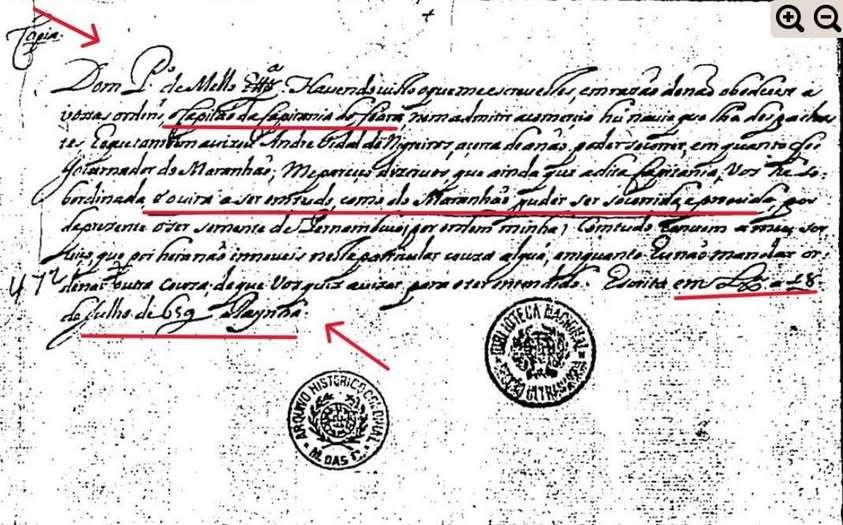 Copia.
Dom P.º de Mello Etc.ª Havendo visto o que me escrevestes, em razão de não obedecer a
vossas ordens o Capitão da Capitania do Ceara, nem admitir a comercio hũ navio que lhe despachas
tes. E o que tambem avizou Andre Vidal de Negreiros, acerca de a não poder socorrer, em quanto foi
Governador do Maranhão; Me pareceo dizervos, que ainda que a dita Capitania, vos he so-
bordinada, e ouvera a ser em tudo, como do Maranhão puder ser socorrida e provida, por
de prezente o ser somente de Pernambuco, por ordem minha; Comtudo convem a meu ser
viço, que por hora não innoveis neste particular couza algũa, emquanto Eu não mandar or-
denar outra couza, de que vos quiz avizar, para o ter entendido. Escrita em Lx.ª a 18
de Julho de 659 a Raynha.
472
ARQUIVO HISTORICO COLONIAL
M. DAS C.
BIBLIOTECA NACIONAL
SECÇÃO ULTRAMARINA